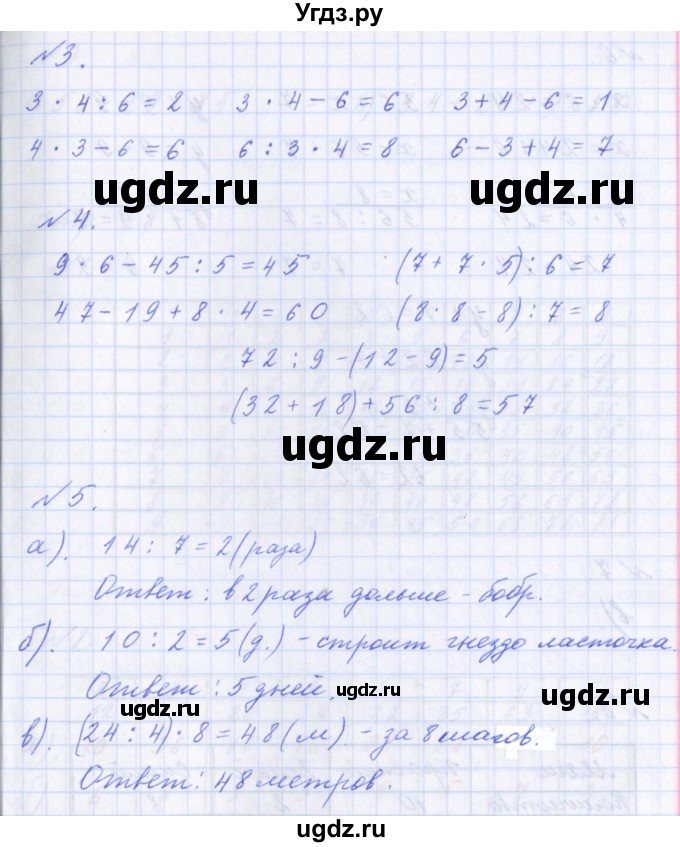 Угдз.ру
№3.
3 · 4 : 6 = 2 3 · 4 - 6 = 6 3 + 4 - 6 = 1
4 · 3 - 6 = 6 6 : 3 · 4 = 8 6 - 3 + 4 = 7
ugdz.ru ugdz.ru
№4.
9 · 6 - 45 : 5 = 45 (7 + 7 · 5) : 6 = 7
47 - 19 + 8 · 4 = 60 (8 · 8 - 8) : 7 = 8
72 : 9 - (12 - 9) = 5
(32 + 18) + 56 : 8 = 57
ugdz.ru
№5.
а). 14 : 7 = 2 (раза)
Ответ : в 2 раза дольше - бобр.
б). 10 : 2 = 5 (д.) - строит гнездо ласточка.
Ответ : 5 дней.
ugdz.ru ugdz.ru
в). (24 : 4) · 8 = 48 (м) - за 8 шагов.
Ответ : 48 метров.
ugdz.ru